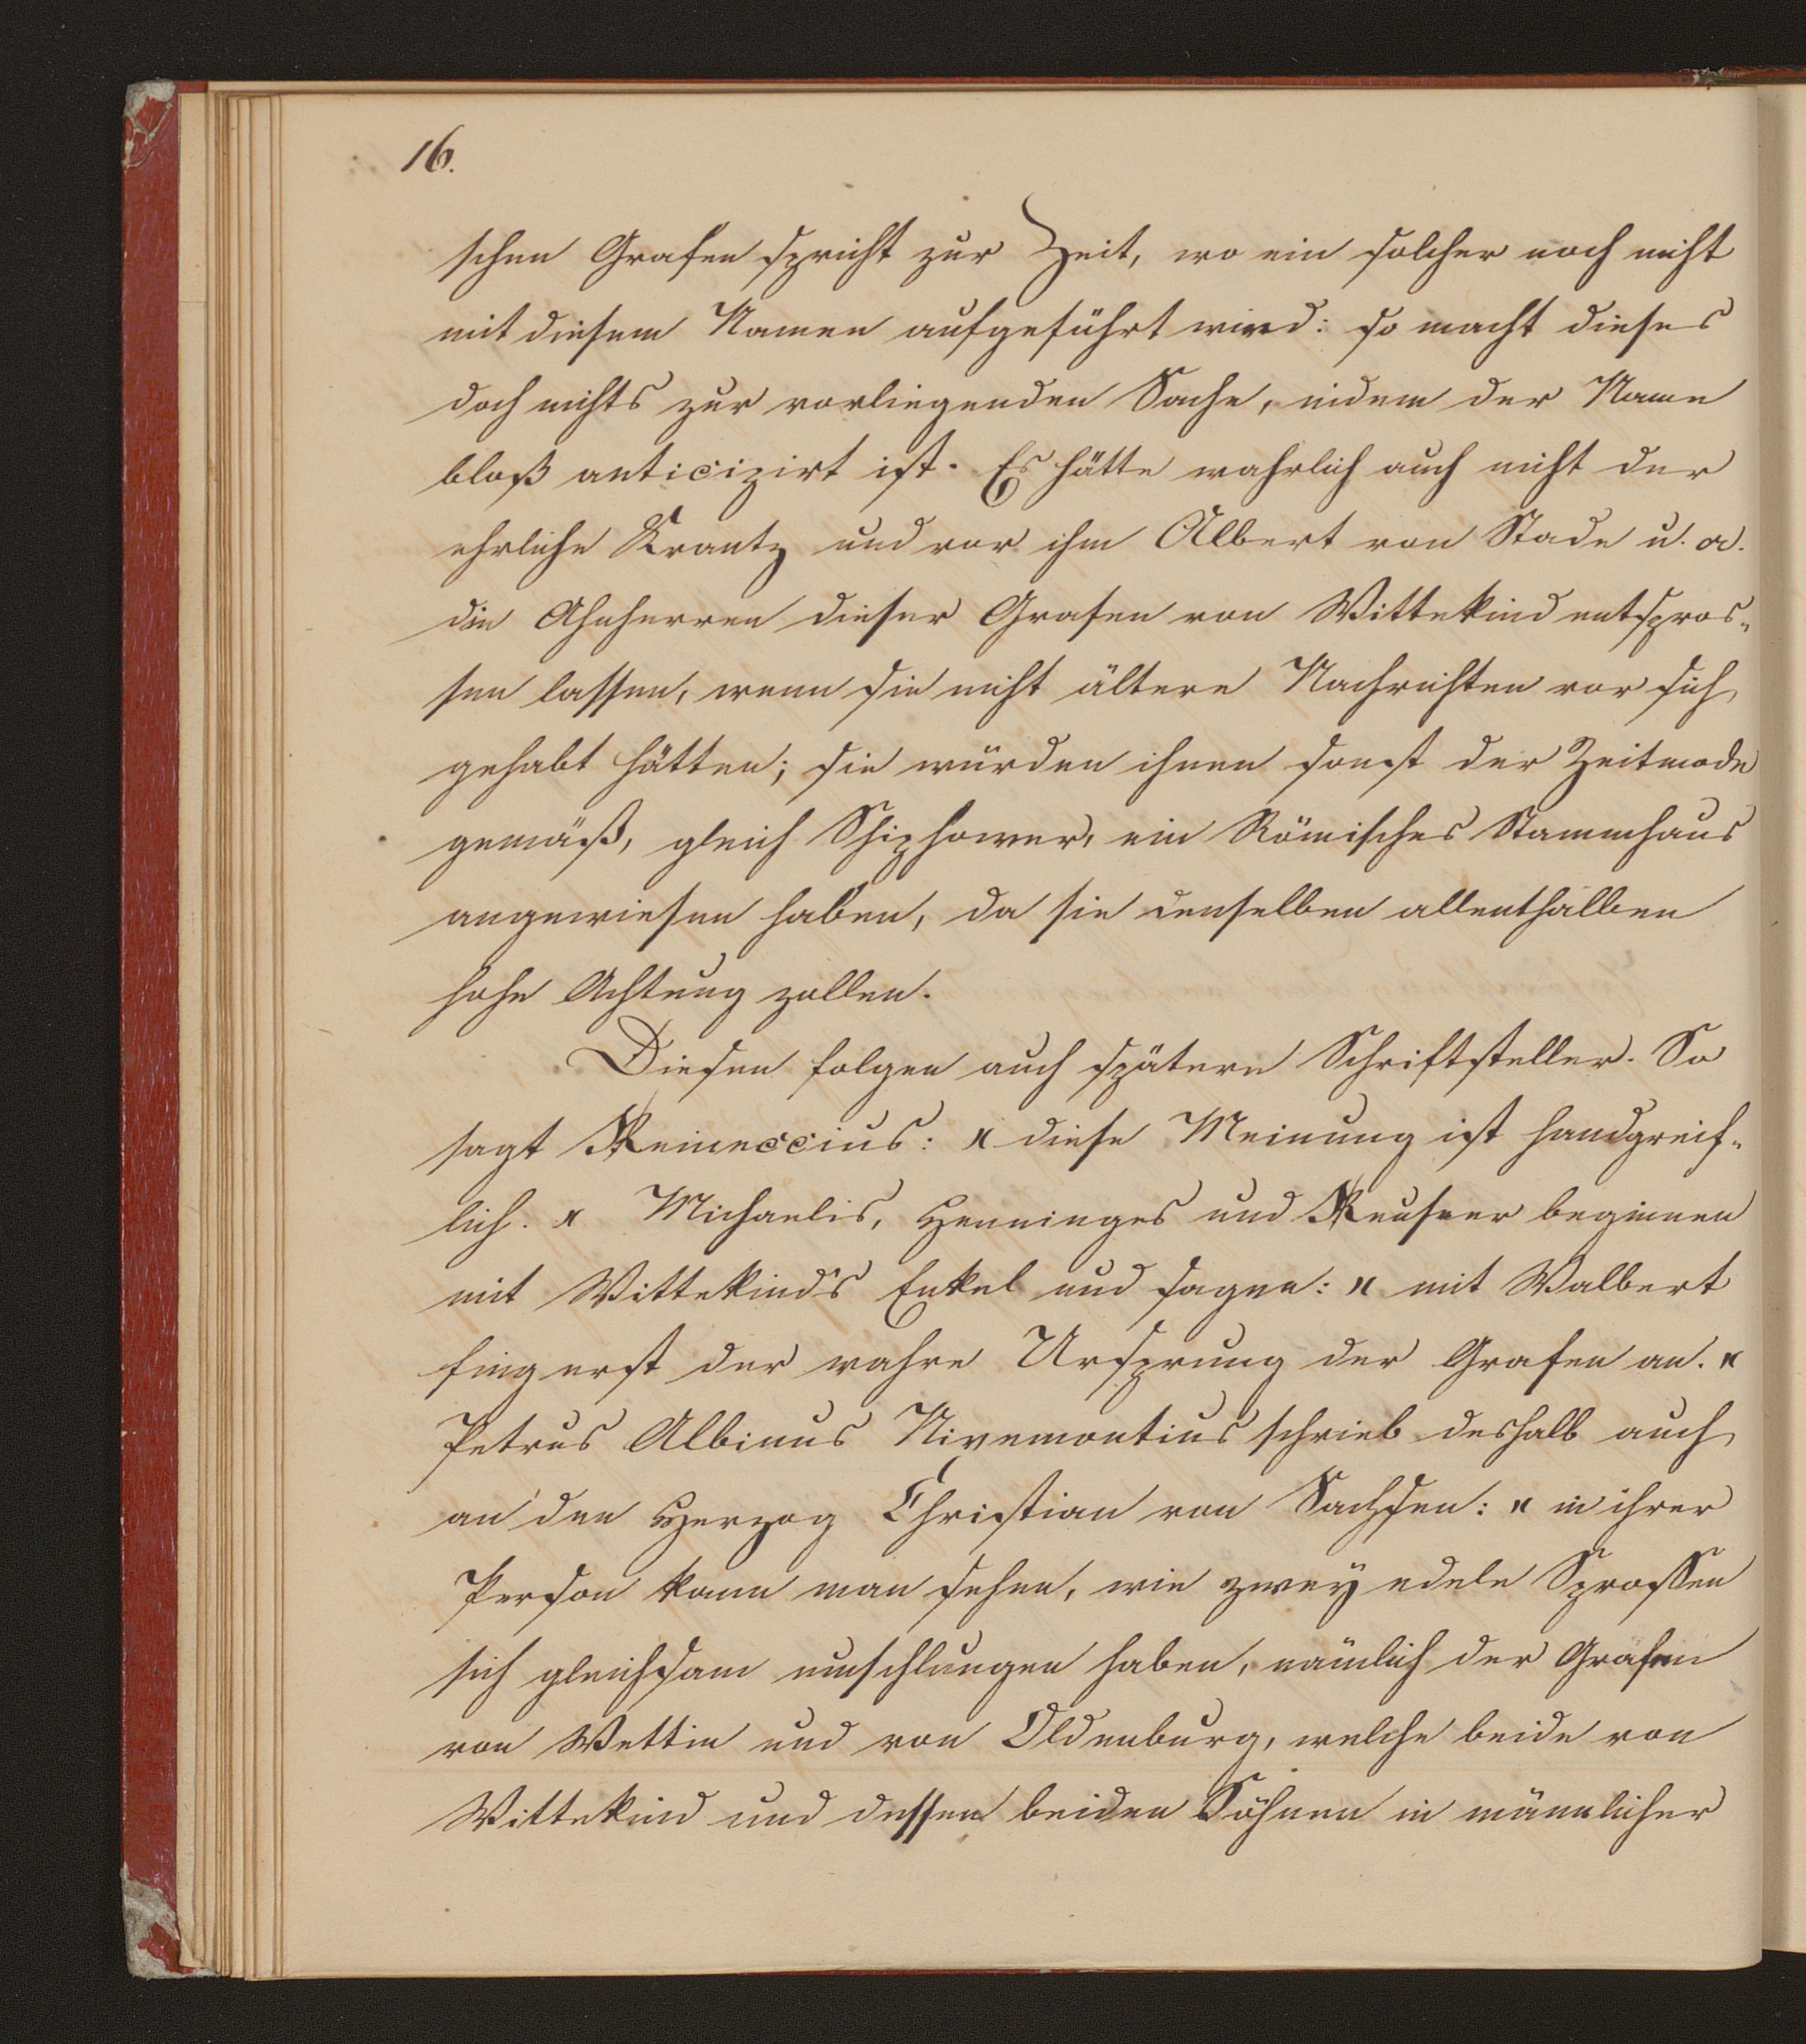 16.
schen Grafen spricht zur Zeit, wo ein solcher noch nicht
mit diesem Namen aufgeführt wird: so macht dieses
doch nichts zur vorliegenden Sache, indem der Name
bloß anticizirt ist. Es hätte wahrlich auch nicht der
ehrliche Krantz und vor ihm Albert von Stade u. a.
die Ahnherren dieser Grafen von Wittekind entspros„
sen lassen, wenn sie nicht ältere Nachrichten vor sich
gehabt hätten; sie würden ihnen sonst der Zeitmode
gemäß, gleich Schiphower, ein Römisches Stammhaus
angewiesen haben, da sie denselben allenthalben
hohe Achtung zollen.
Diesen folgen auch spätere Schriftsteller. So
sagt Reineccius: „ diese Meinung ist handgreif„
lich. „ Michaelis, Henninges und Reusner beginnen
mit Wittekind's Enkel und sagen: „ mit Walbert
fing erst der wahre Ursprung der Grafen an. „
Petrus Albinus Nivemontius schrieb deshalb auch
an den Herzog Christian von Sachsen: „ in ihrer
Person kann man sehen, wie zwey edele Sprossen
sich gleichsam umschlungen haben, nämlich der Grafen
von Wettin und von Oldenburg, welche beide von
Wittekind und dessen beiden Söhnen in männlicher